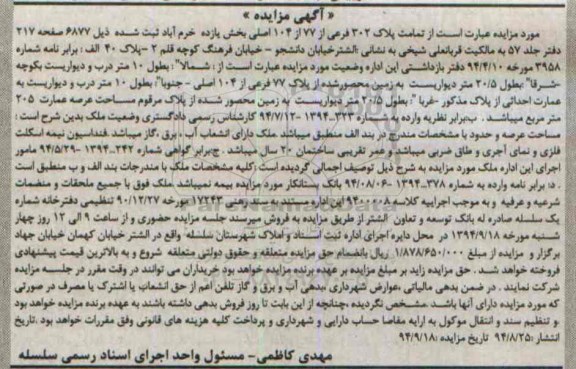 « آگهی مزایده »
مورد مزایده عبارت است از تمامت پلاک ۳۰۲ فرعی از ۷۷ از ۱۰۴ اصلی بخش یازده خرم آباد ثبت شده ذیل ۶۸۷۷ صفحه ۲۱۷
دفتر جلد ۵۷ به مالکیت قربانعلی شیخی به نشانی :الشترخیابان دانشجو - خیابان فرهنگ کوچه قلم ۲ -پلاک ۴۰ الف : برابر نامه شماره
۳۹۵۸ مورخه ۹۴/۴/۱۰ دفتر بازداشتی این اداره وضعیت مورد مزایده عبارت است از : شمالا" : بطول ۱۰ متر درب و دیواریست بکوچه
-شرقا" بطول ۲۰/۵ متر دیواریست به زمین محصورشده از پلاک ۷۷ فرعی از ۱۰۴ اصلی - جنوبا" بطول ۱۰ متر درب و دیواریست به
عمارت احداثی از پلاک مذکور -غربا ": بطول ۲۰/۵ متر دیواریست به زمین محصور شده از پلاک مرقوم مساحت عرصه عمارت ۲۰۵
متر مربع میباشد . ب:برابر نظریه وارده به شماره ۳۲۳-۱۳۹۴ -۹۴/۷/۱۳ کارشناس رسمی دادگستری وضعیت ملک بدین شرح است :
مساحت عرصه و حدود با مشخصات مندرج در بند الف منطبق میباشد. ملک دارای انشعاب آب ،برق ،گاز میباشد. فنداسیون نیمه اسکلت
فلزی و نمای آجری و طاق ضربی میباشد و عمر تقریبی ساختمان ۲۰ سال میباشد . ج:برابر گواهی شماره ۲۴۲-۱۳۹۴ -۹۴/۵/۲۹ مامور
اجرای این اداره ملک مورد مزایده به شرح ذیل توصیف اجمالی گردیده است :کلیه مشخصات ملک با مندرجات بند الف و ب منطبق است
. د: برابر نامه وارده به شماره ۳۷۸-۱۳۹۴ -۹۴/۰۸/۰۶ بانک بستانکار مورد مزایده بیمه نمیباشد. ملک فوق با جمیع ملحقات و منضمات
شرعیه و عرفیه و به موجب اجرائیه کلاسه ۹۴۰۰۰۰۸ این اداره مستند به سند رهنی ۱۷۲۴۳ مورخه ۹۰/۱۲/۲۷ تنظیمی دفترخانه شماره
یک سلسله صادره له بانک توسعه و تعاون الشتر از طریق مزایده به فروش میرسند جلسه مزایده حضوری و از ساعت ۹ الی ۱۲ روز چهار
شنبه مورخه ۱۳۹۴/۹/۱۸ در محل دایره اجرای اداره ثبت اسناد و املاک شهرستان سلسله واقع در الشتر خیابان کهمان خیابان جهاد
برگزار و مزایده از مبلغ ۱/۸۷۸/۶۵۰/۰۰۰ ریال بانضمام حق مزایده متعلقه و حقوق دولتی متعلقه شروع و به بالاترین قیمت پیشنهادی
فروخته خواهد شد . حق مزایده زاید بر مبلغ مزایده بر عهده برنده مزایده خواهد بود خریداران می توانند در وقت مقرر در جلسه مزایده
شرکت نمایند . در ضمن بدهی مالیاتی ،عوارض شهرداری بدهی آب و برق و گاز تلفن اعم از حق انشعاب یا اشتراک یا مصرف در صورتی
که مورد مزایده دارای آنها باشد. مشخص نگردیده ،چنانچه از این بابت تا روز فروش بدهی داشته باشند به عهده برنده مزایده خواهد بود
و تنظیم سند و انتقال موکول به ارایه مفاصا حساب دارایی و شهرداری و پرداخت کلیه هزینه های قانونی وفق مقررات خواهد بود .تاریخ
انتشار :۹۴/۸/۲۵ تاریخ مزایده :۹۴/۹/۱۸
مهدی کاظمی- مسئول واحد اجرای اسناد رسمی سلسله